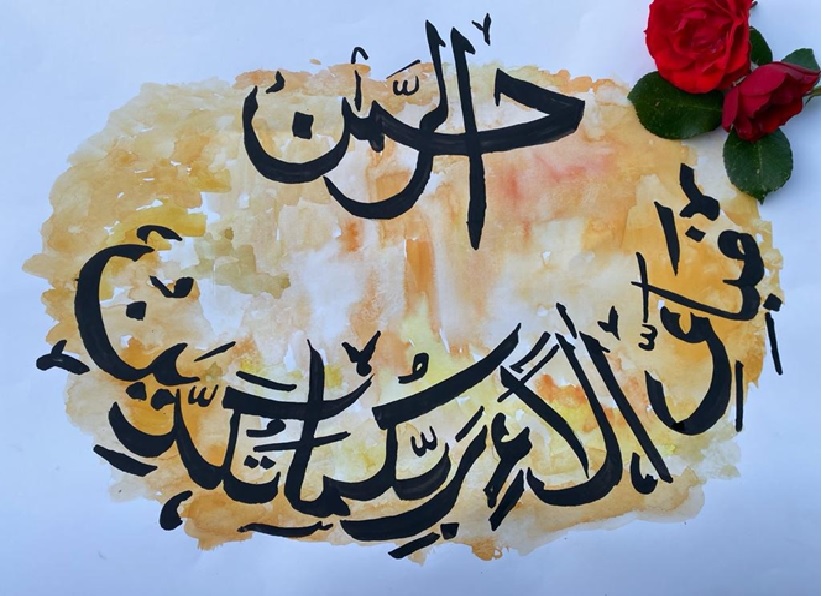 الرحمٰن
فَبِأَيِّ آلَاءِ رَبِّكُمَا تُكَذِّبَانِ